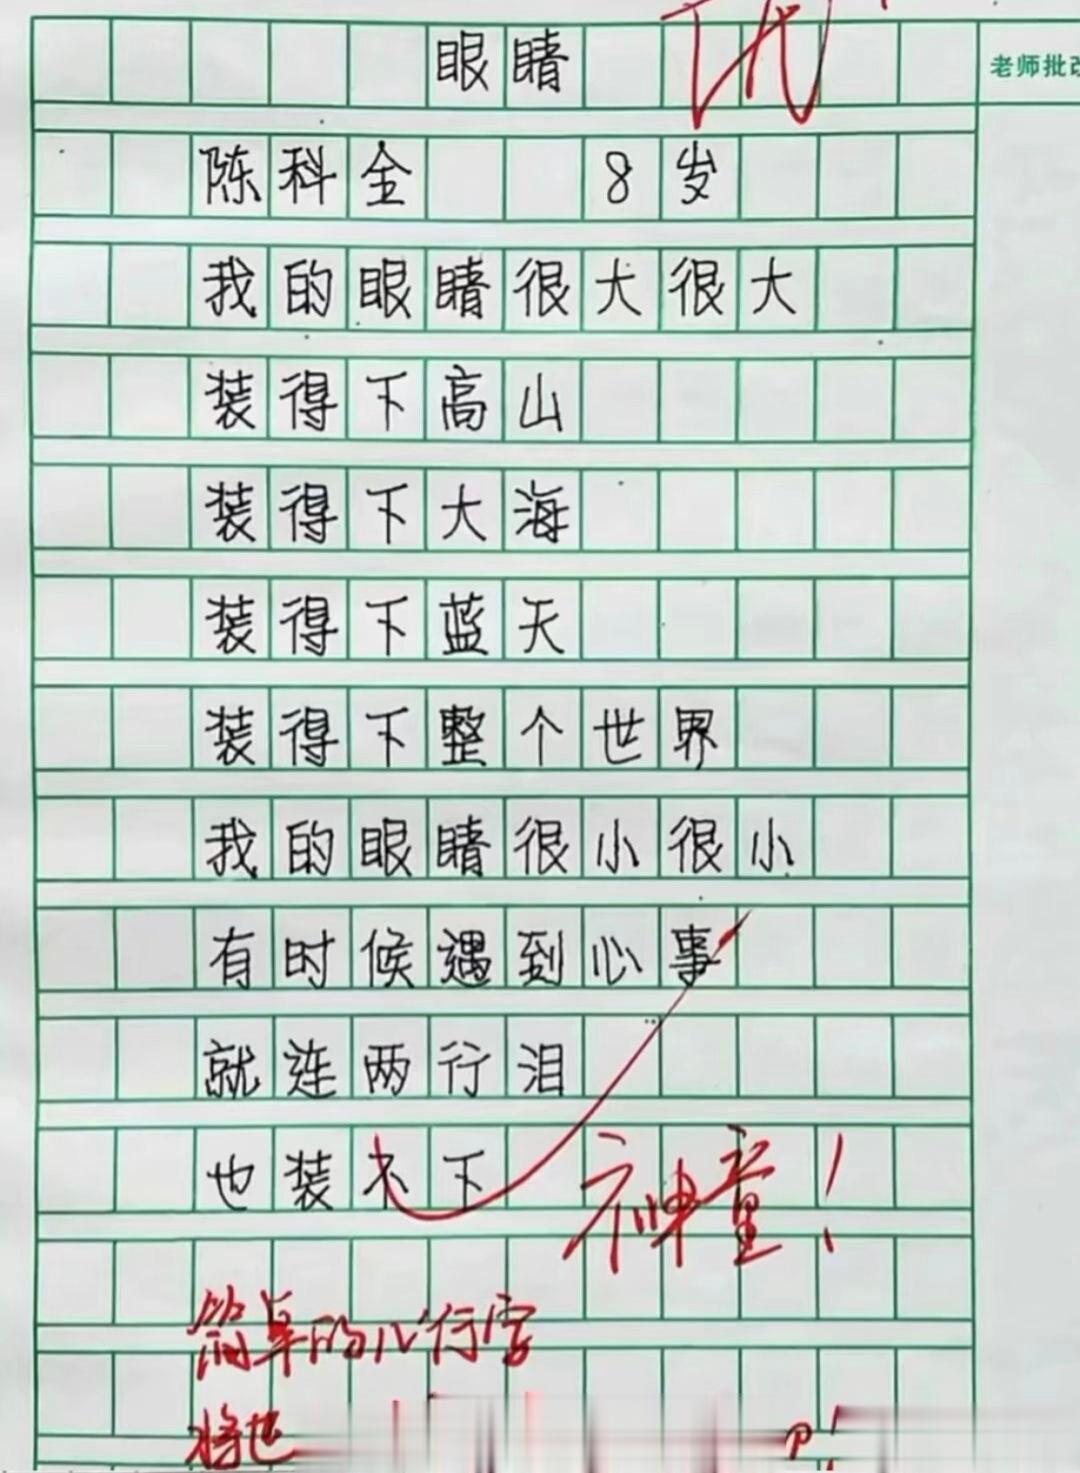 眼睛
老师批改
陈科全 8岁
我的眼睛很大很大
装得下高山
装得下大海
装得下蓝天
装得下整个世界
我的眼睛很小很小
有时候遇到心事
就连两行泪
也装不下
神童！
简单的几行字
将世